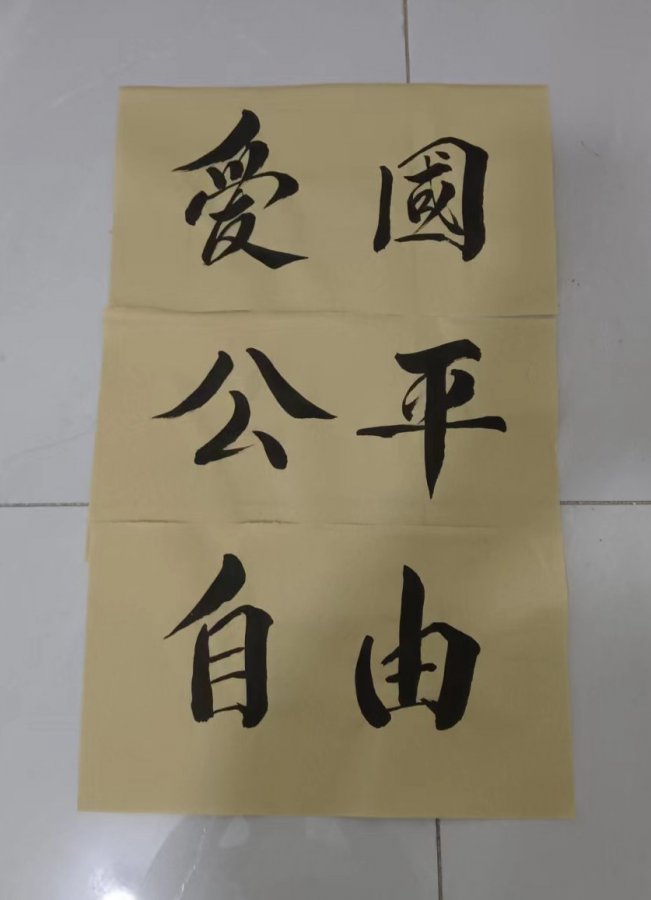 愛國
公平
自由